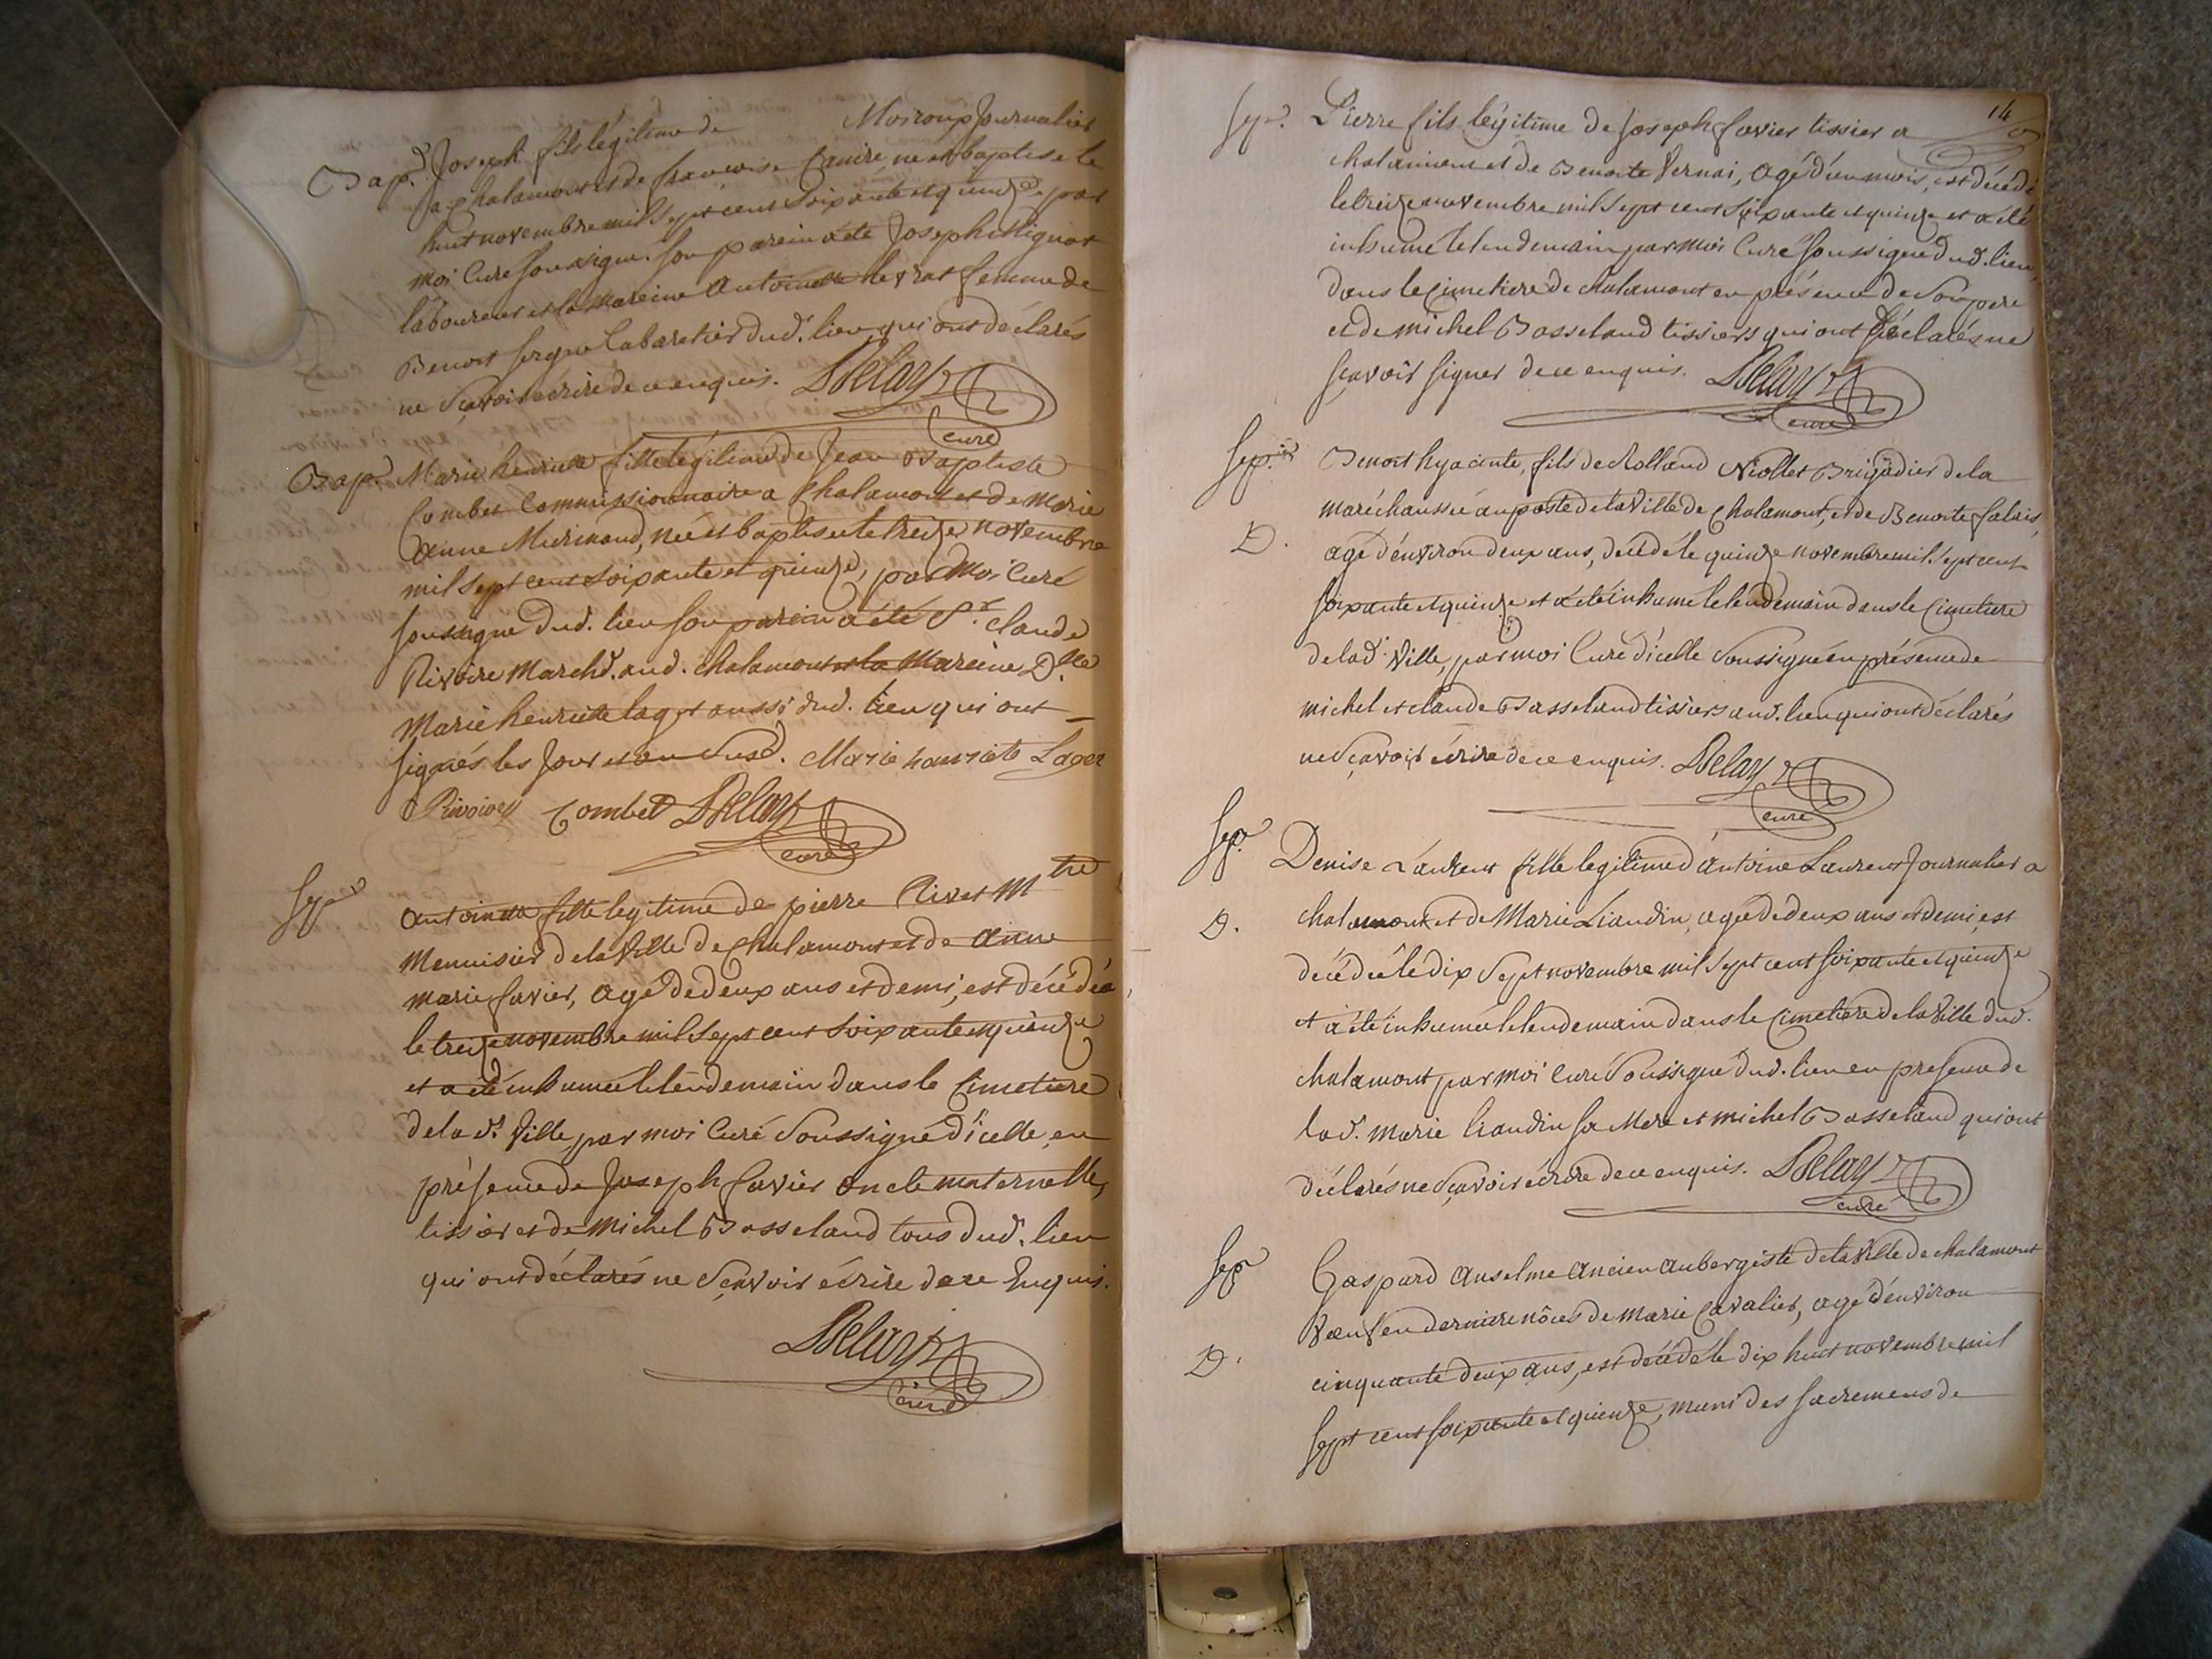 Bap.d Joseph fils légitime de Moiroux Journalier
a chalamont et de francoise Caniré ne et baptise le
huit novembre mil sept cent soixante et quinze par
moi Curé soussigné. son parein a été Joseph Mignot
laboureur et la mareine Antoinette femme de
Benoit Cabaretier dud. lieu qui ont déclarés
ne sçavoir écrire de ce enquis. Delay
curé
Bap. Marie henriette fille légitime de Jean Baptiste
Combet Commissionnaire a Chalamont et de Marie
Anne Murinaud, née et baptisee le treize novembre
mil sept cent soixante et quinze, par moi Curé
soussigné dud. lieu son parein a été Sr. claude
Rivoire Marchd. aud. chalamont et la Mareine D.lle
Marie henriette laget aussi dud. lieu qui ont
signés les Jour et an susd. Marie hanriete Laget
Rivoire Combet Delay
curé
Sep.
Antoinette fille legitime de pierre Rivet Mtre
Menuisier de la Ville de Chalamont et de Anne
marie favier, agé de deux ans et demi, est décédée
le treize novembre mil sept cent soixante et quinze
et a été inhumée le lendemain dans le Cimetiere
de la d. Ville par moi Curé soussigné d'icelle, en
présence de Joseph favier oncle maternelle,
tissier et de Michel Basseland tous dud. lieu
qui ont déclarés ne sçavoir écrire de ce Enquis.
Delay
curé
14
Sep. Pierre fils légitime de Joseph favier tissier a
chalamont et de Benoite Vernai, agé d'un mois, est décédé
le treize novembre mil sept cent soixante et quinze et a été
inhumé le lendemain par moi Curé soussigné dud. lieu,
dans le Cimetiere de chalamont en présence de son pere
et de michel Basseland tissiers qui ont déclarés ne
sçavoir signer de ce enquis. Delay
curé
Sep. Benoit hyacinte, fils de Rolland Niollet Brigadier de la
maréchaussée au poste de la Ville de Chalamont, et de Benoite falais
D. agé d'environ deux ans, décédé le quinze novembre mil sept cent
soixante et quinze et a été inhumé le lendemain dans le Cimetiere
de lad. Ville, par moi Curé d'icelle soussigné en présence de
michel et claude Basseland tissiers aud. lieu qui ont déclarés
ne sçavoir écrire de ce enquis. Delay
curé
Sep. Denise Laurent fille legitime d'antoine Laurent Journalier a
D. chalamont et de Marie Liandin, agée de deux ans et demi, est
décédée le dix sept novembre mil sept cent soixante et quinze
et a été inhumée le lendemain dans le Cimetiere de la Ville dud.
chalamont par moi Curé soussigné dud. lieu en presence de
lad. Marie Liandin sa Mere et michel Basseland qui ont
déclarés ne sçavoir écrire de ce enquis. Delay
curé
Sep Gaspard Anselme Ancien Aubergiste de la Ville de chalamont
veuf en derniere nôces de Marie Cavalier, agé d'environ
D. cinquante deux ans, est décédé le dix huit novembre mil
sept cent soixante et quinze, muni des sacremens de